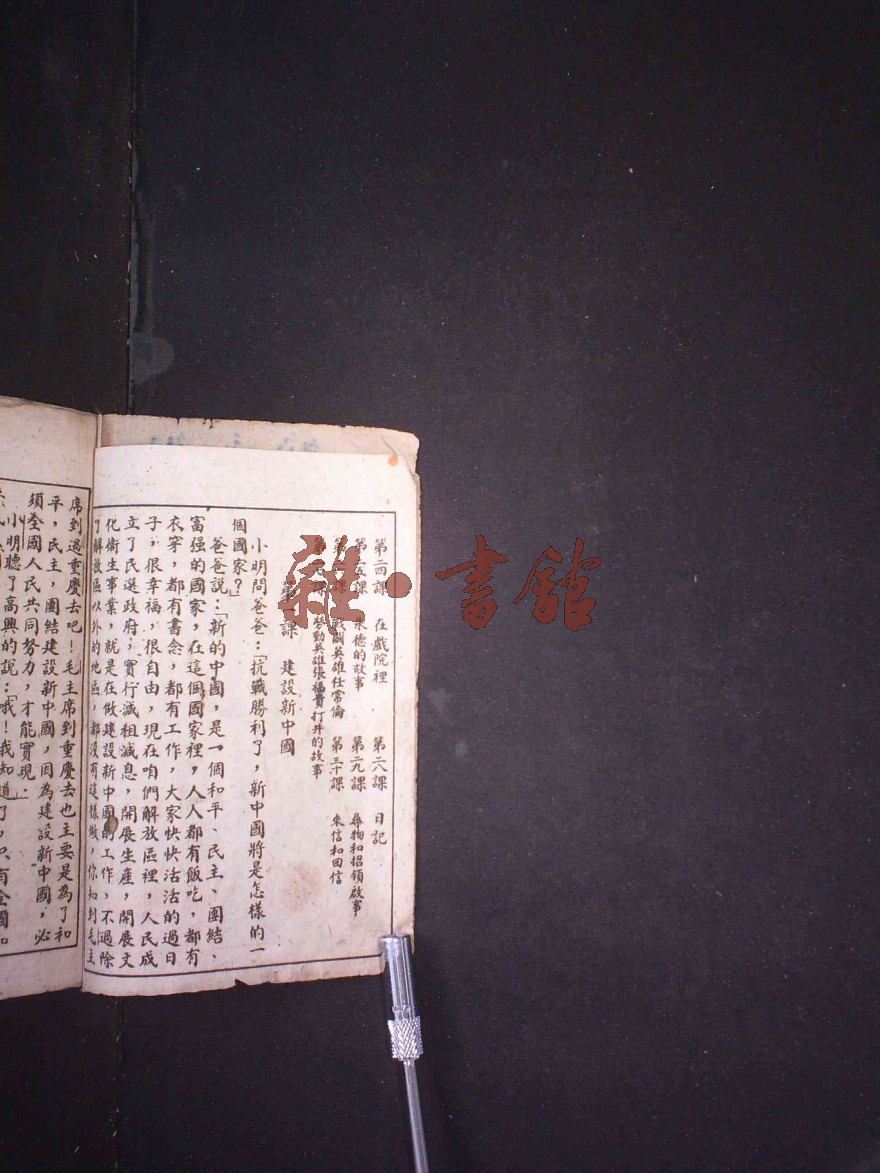 第二四課　在戲院裡　第二八課　日記
第二五課　朱德的故事　第二九課　尋物和招領啟事
課　戰鬭英雄任常倫　第三十課　來信和回信
課　勞動英雄張福貴打井的故事
課　建設新中國
小明問爸爸：「抗戰勝利了，新中國將是怎樣的一
個國家？」
爸爸說：「新的中國，是一個和平、民主、團結、
富强的國家，在這個國家裡，人人都有飯吃，都有
衣穿，都有書念，都有工作，大家快快活活的過日
子，很幸福，很自由，現在咱們解放區裡，人民成
立了民選政府；實行減租減息，開展生產，開展文
化衛生事業，就是在做建設新中國的工作，不過除
了解放區以外的地區，都沒有這樣做，你知到毛主
席到過重慶去吧！毛主席到重慶去也主要是為了和
平，民主，團結建設新中國，因為建設新中國，必
須全國人民共同努力，才能實現。
小明聽了高興的說：「哦！我知道了，只有全國和
雜·書館